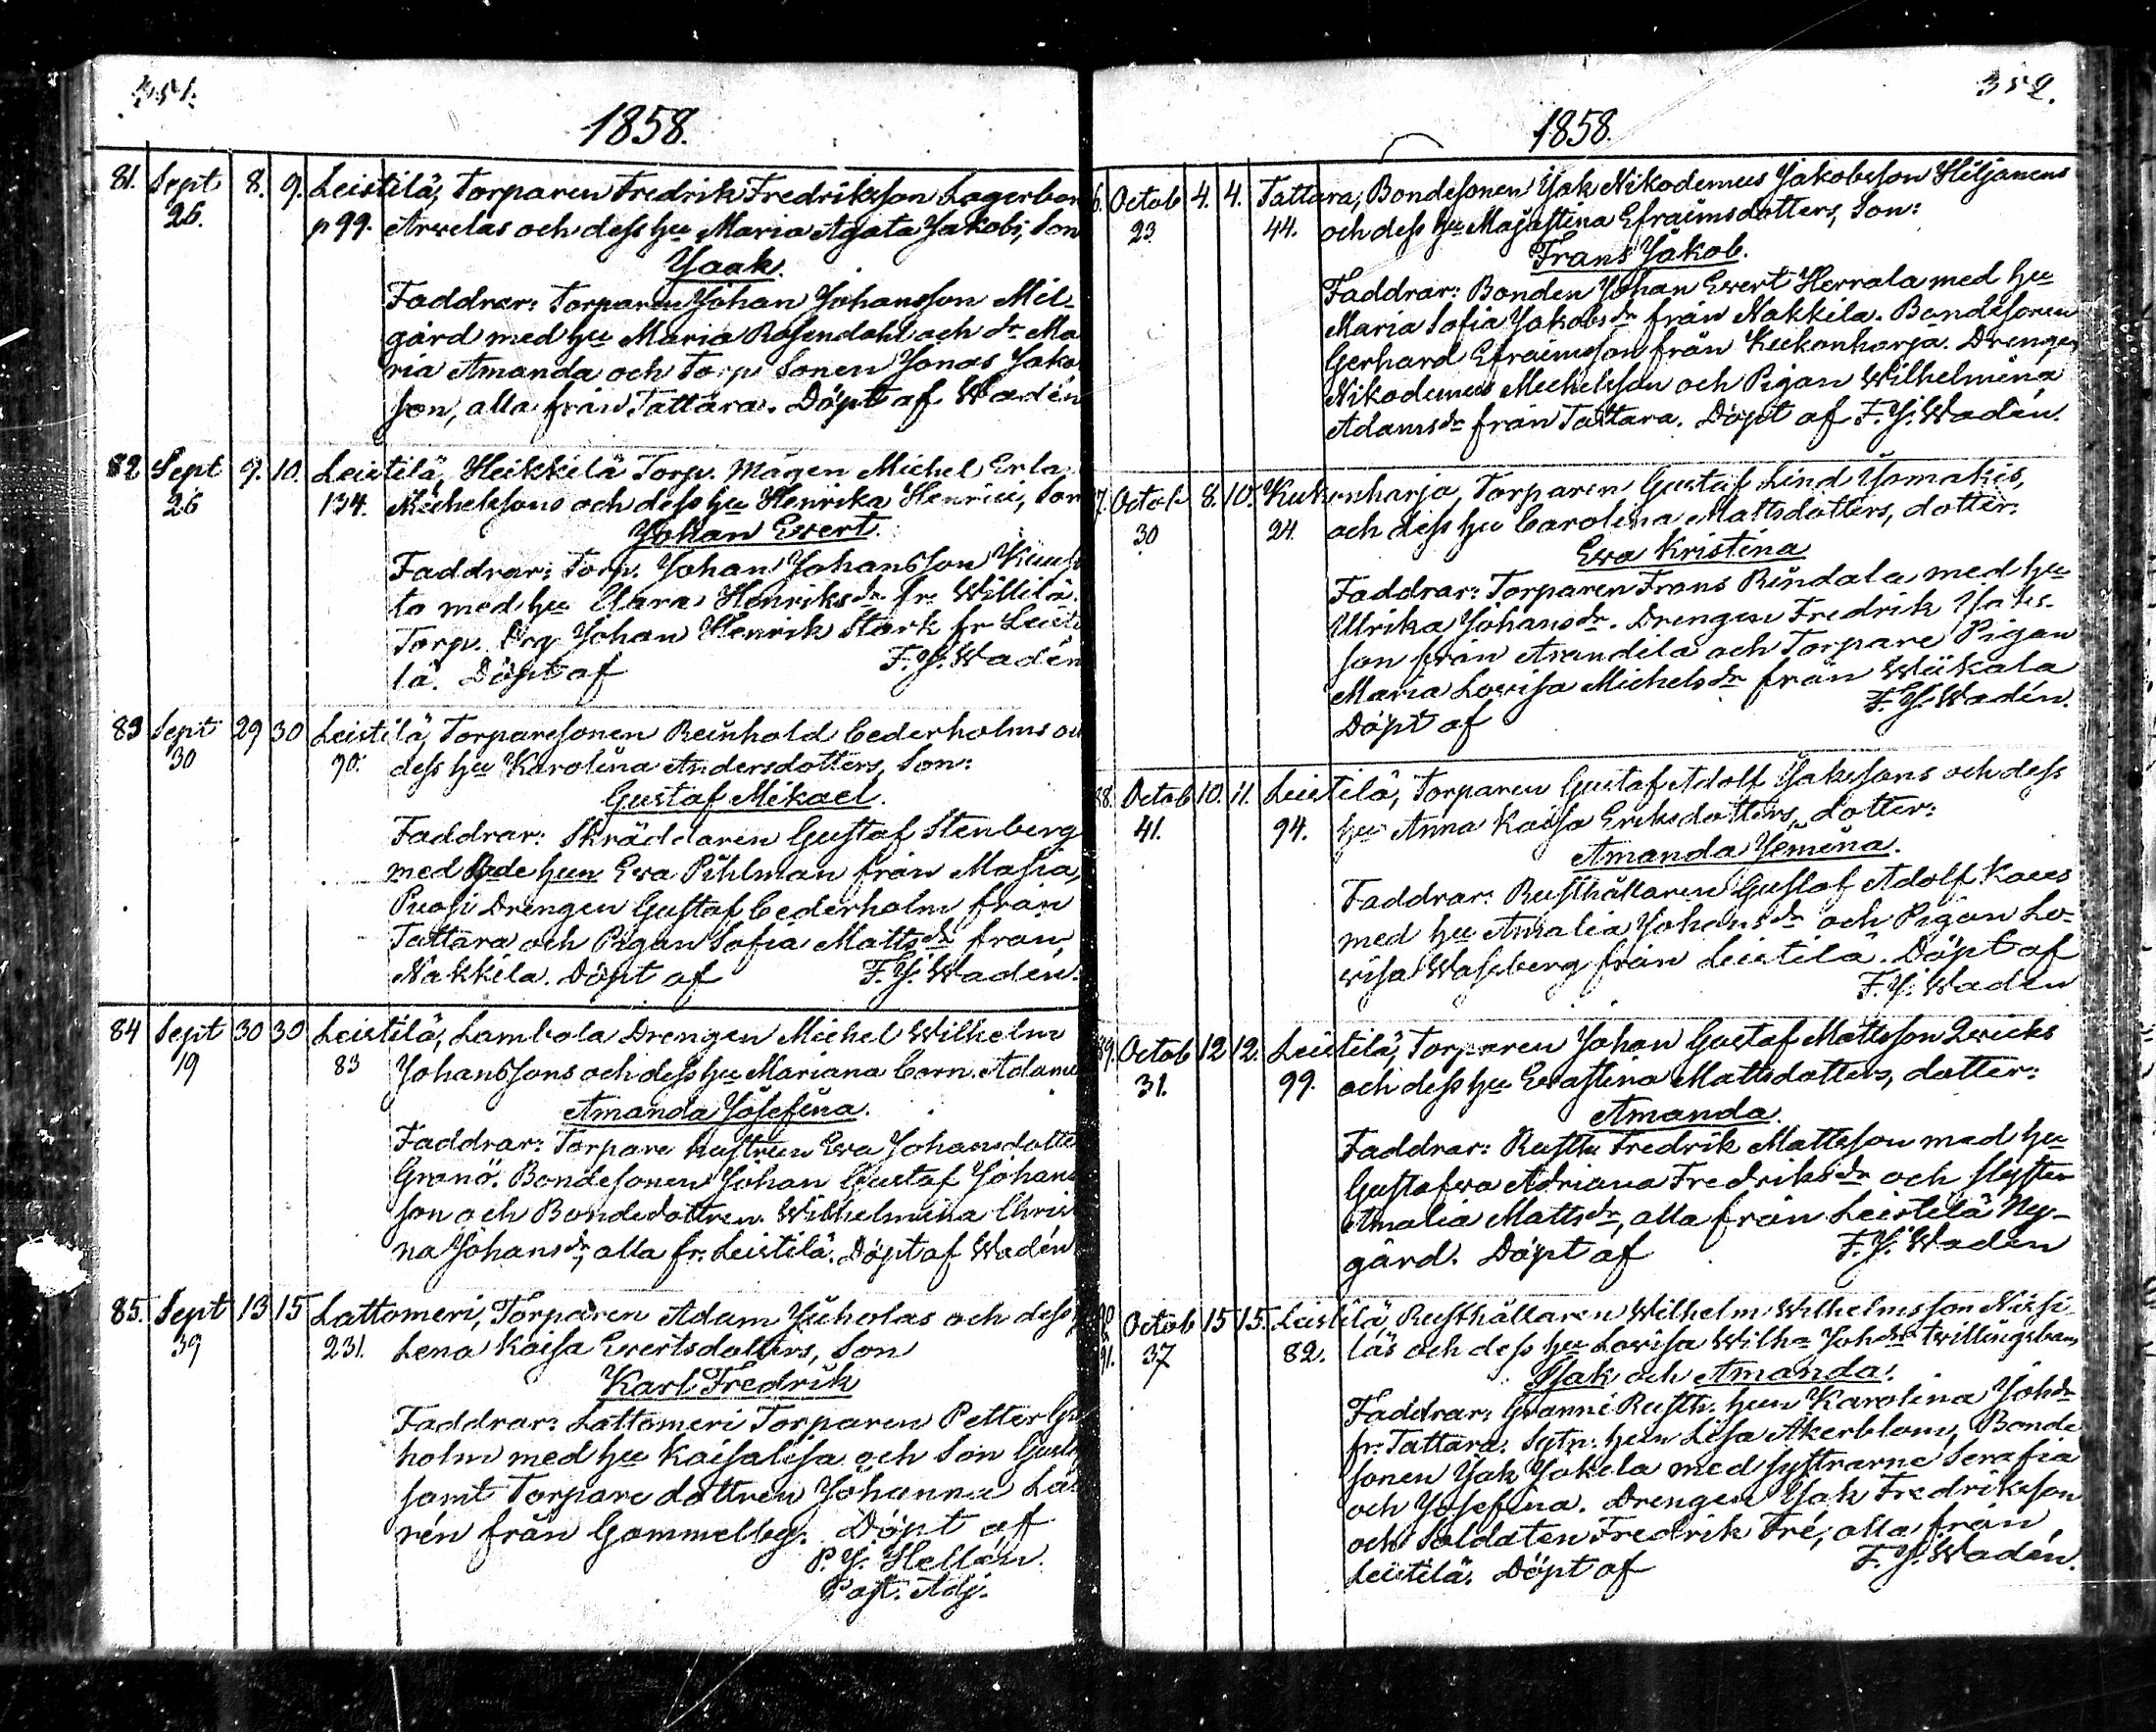 351.
1858.
81. Sept 8. 9. Leistilä, Torparen Fredrik Fredriksson Lagerbom
26. p 99. Arvelas och dess hu Maria Agata Jakobi, Son
Isak.
Faddrar: Torparen Johan Johansson Mel-
gård med hu Maria Rosendahl och dr Ma
ria Amanda och Torp Sonen Jonas Jako
son, alla från Tattara. Döpt af Wadén
82 Sept 9. 10. Leistilä, Heikkilä Torp. Mågen Michel Erla
26 134. Michelssons och dess hu Henrika Henrici, Son
Johan Evert.
Faddrar: Torp. Johan Johansson Kuus
to med hu Clara Henriksdr fr. Willilä.
Torp. Drg Johan Henrik Stark fr Leisti
lä. Döpt af F. J. Wadén
83 Sept 29 30 Leistilä, Torparesonen Reinhold Cederholms och
30 90. dess hu Karolina Andersdotters, Son:
Gustaf Mikael.
Faddrar: Skräddaren Gustaf Stenberg
med hun Eva Pihlman från Masia,
Puosi Drengen Gustaf Cederholm från
Tattara och Pigan Sofia Mattsdr från
Nakkila. Döpt af F. J. Wadén.
84 Sept 30 30 Leistilä, Lambola Drengen Michel Wilhelm
19 83 Johanssons och dess hu Mariana Carn. Adams
Amanda Josefina.
Faddrar: Torpare hustrun Eva Johansdotte
Granö. Bondesonen Johan Gustaf Johans
son och Bondedottren Wilhelmina Chris
na Johansdr, alla fr. Leistilä. Döpt af Wadén
85. Sept 13 15 Lattomeri, Torparen Adam Juholas och dess
39 231. Lena Kaisa Evertsdotters, Son
Karl Fredrik
Faddrar: Lattomeri Torparen Petter Gr
holm med hu Kaisalisa och Son Gustaf
samt Torpare dottren Johanna La
rén från Gammelby. Döpt af
P. J. Hellén.
Past. Adj.
352.
1858.
6. Octob 4. 4. Tattara, Bondesonen Isak Nikodemus Jakobsson Hiljanens
23 44. och dess hu Majastina Efraimsdotters, Son:
Frans Jakob.
Faddrar: Bonden Johan Evert Herrala med hu
Maria Sofia Jakobsdr från Nakkila. Bondesonen
Gerhard Efraimsson från Kukonharja. Drengen
Nikodemus Michelsson och Pigan Wilhelmina
Adamsdr från Tattara. Döpt af F. J. Wadén.
7. Octob 8. 10. Kukonharja, Torparen Gustaf Lind Isomäkis,
30 24. och dess hu Carolina Mattsdotters, dotter:
Eva Kristina
Faddrar: Torparen Frans Rindala med hu
Ulrika Johansdr. Drengen Fredrik Isaks-
son från Arandila och Torpare Pigan
Maria Lovisa Michelsdr från Wiikala
Döpt af F. J. Wadén.
88. Octob 10. 11. Leistilä, Torparen Gustaf Adolf Isakssons och dess
41. 94. hu Anna Kaisa Eriksdotters, dotter:
Amanda Jemina.
Faddrar: Rusthållaren Gustaf Adolf Kaus
med hu Amalia Johansdr och Pigan Lo-
visa Wassberg från Leistilä. Döpt af
F. J. Wadén
89. Octob 12 12. Leistilä, Torparen Johan Gustaf Mattsson Qvicks
31. 99. och dess hu Evastina Mattsdotters, dotter:
Amanda.
Faddrar: Rusth Fredrik Mattsson med hu
Gustafva Adriana Fredriksdr och syster
Amalia Mattsdr, alla från Leistilä Ny-
gård. Döpt af F. J. Wadén
Octob 15 15. Leistilä, Rusthållaren Wilhelm Wilhelmsson Nissi
91. 37 82. läs och dess hu Lovisa Wilha Johdr twillingsbarn
Isak och Amanda.
Faddrar: Granni Rusth. hun Karolina Johdr
fr. Tattara. Sytn. hun Lisa Åkerblom, Bonde
sonen Isak Jakola med systrarne Serafia
och Josefina. Drengen Isak Fredriksson
och Soldaten Fredrik Fré, alla från
Leistilä. Döpt af F. J. Wadén.